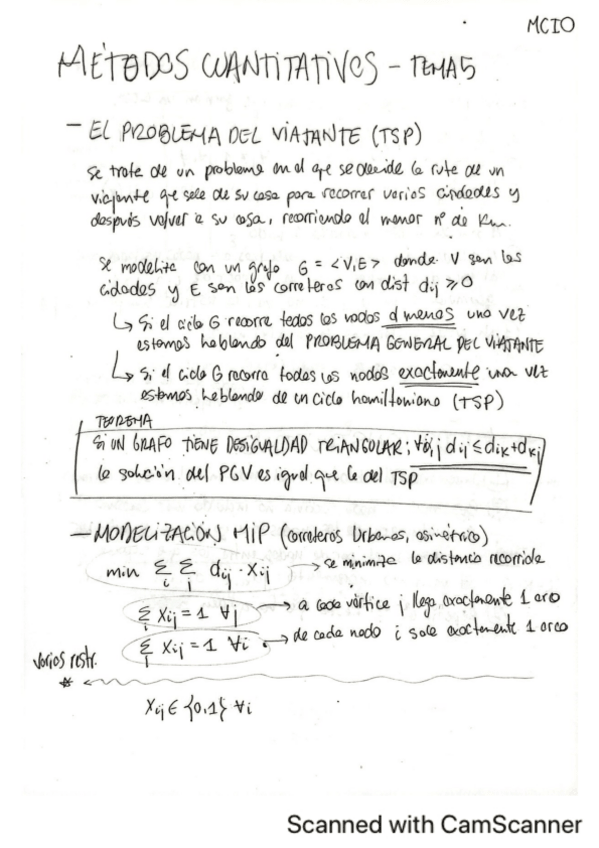 MCIO
MÉTODOS CUANTITATIVOS - TEMA 5
- EL PROBLEMA DEL VIAJANTE (TSP)
Se trata de un problema en el que se decide la ruta de un
viajante que sale de su casa para recorrer varias ciudades y
después volver a su casa, recorriendo el menor nº de Km.
Se modeliza con un grafo G = <V,E> donde V son las
cidades y E son las carreteras con dist dij ≥ 0
↳ Si el ciclo G recorre todos los nodos al menos una vez
estamos hablando del PROBLEMA GENERAL DEL VIAJANTE
↳ Si el ciclo G recorre todos los nodos exactamente una vez
estamos hablando de un ciclo hamiltoniano (TSP)
TEOREMA
SI UN GRAFO TIENE DESIGUALDAD TRIANGULAR; ∀i,j dij ≤ dik + dkj
la solución del PGV es igual que la del TSP
- MODELIZACIÓN MIP (carreteras Urbanas, asimétrico)
min Σi Σj dij · Xij → se minimiza la distancia recorrida
Σi Xij = 1 ∀j → a cada vértice j llega exactamente 1 arco
Σj Xij = 1 ∀i → de cada nodo i sale exactamente 1 arco
varias restr.
*
Xij ∈ {0,1} ∀i
Scanned with CamScanner